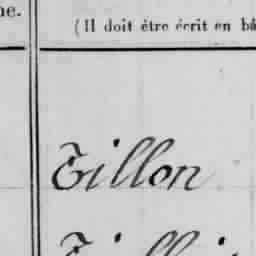 ne.
(Il doit être écrit en bâ
Tillon